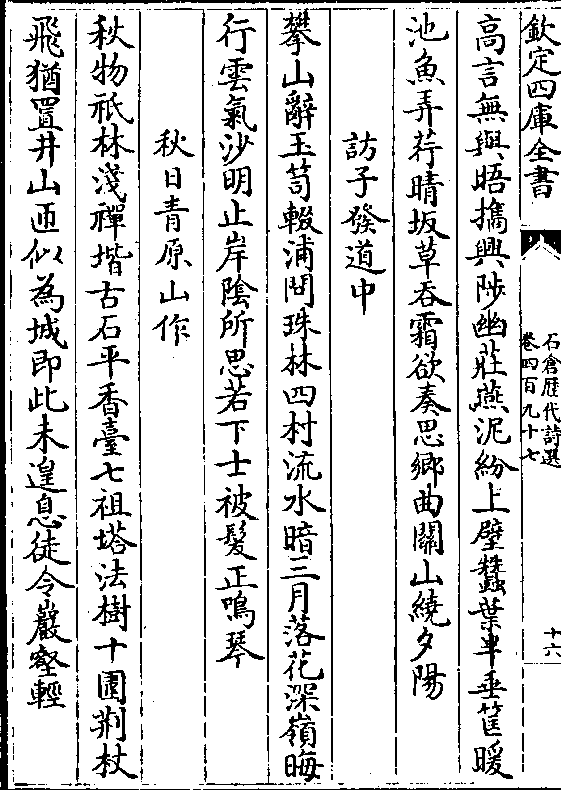 欽定四庫全書
石倉歷代詩選
卷四百九十七
十六
高言無與晤攜興陟幽莊燕泥紛上壁蠶葉半垂筐暖
池魚弄荇晴坂草吞霜欲奏思鄉曲關山繞夕陽
訪子發道中
攀山辭玉笥輟浦問珠林四村流水暗三月落花深嶺晦
行雲氣沙明止岸陰所思若下士被髮正鳴琴
秋日青原山作
秋物祇林淺禪堦古石平香臺七祖塔法樹十圍荆杖
飛猶置井山匝似為城即此未遑息徒令巖壑輕